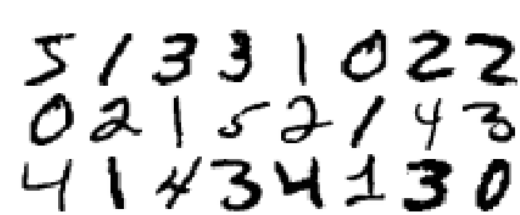 5 1 3 3 1 0 2 2
0 2 1 5 2 1 4 3
4 1 4 3 4 1 3 0